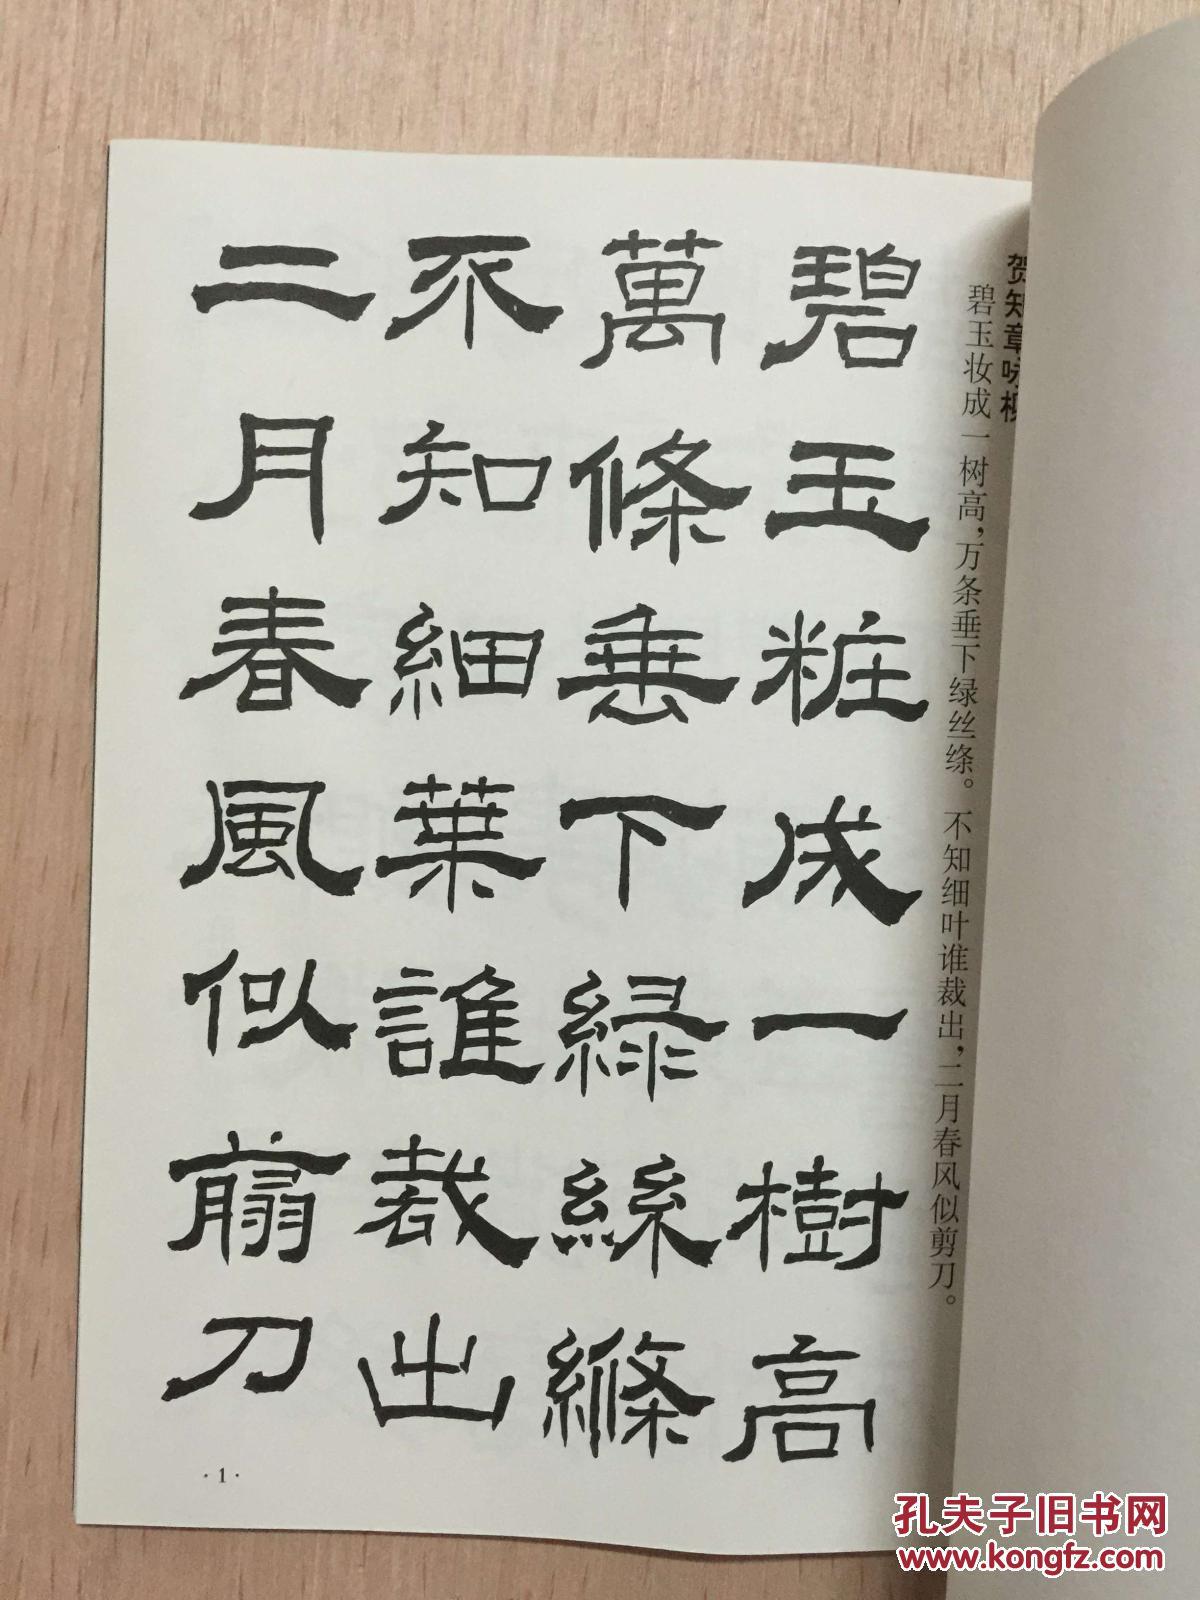 贺知章咏柳
碧玉妆成一树高，万条垂下绿丝绦。不知细叶谁裁出，二月春风似剪刀。
碧玉粧成一樹高
萬條垂下緑絲縧
不知細葉誰裁出
二月春風似翦刀
·1·
孔夫子旧书网
www.kongfz.com